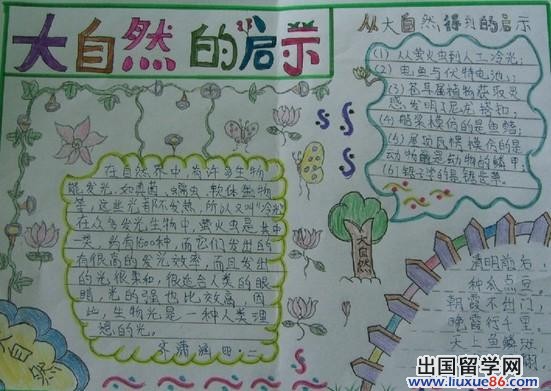 大自然的启示
从大自然得到的启示
(1)从萤火虫到人工冷光;
(2)电鱼与伏特电池;
(3)苍耳属植物获取灵
感发明了尼龙搭扣,
(4)船桨模仿的是鱼鳍;
(5)屋顶瓦楞模仿的是
动物的鳞甲;
(6)锯子学的是锯齿草。
在自然界中,有许多生物
能发光,如真菌、蠕虫、软体生物
等,这些光都不发热,所以又叫“冷光
在众多发光生物中,萤火虫是其中
一类,约有1500种,而它们发出的
有很高的发光效率,而且发出
的光很柔和,很适合人类的眼
睛,光的强也比较高,因
此,生物光是一种人类理
想的光。
四、二
大自然
大自然
清明前后,
种瓜点豆
朝霞不出门,
晚霞行千里,
天上鱼鳞斑
出国留学网
www.liuxue86.com